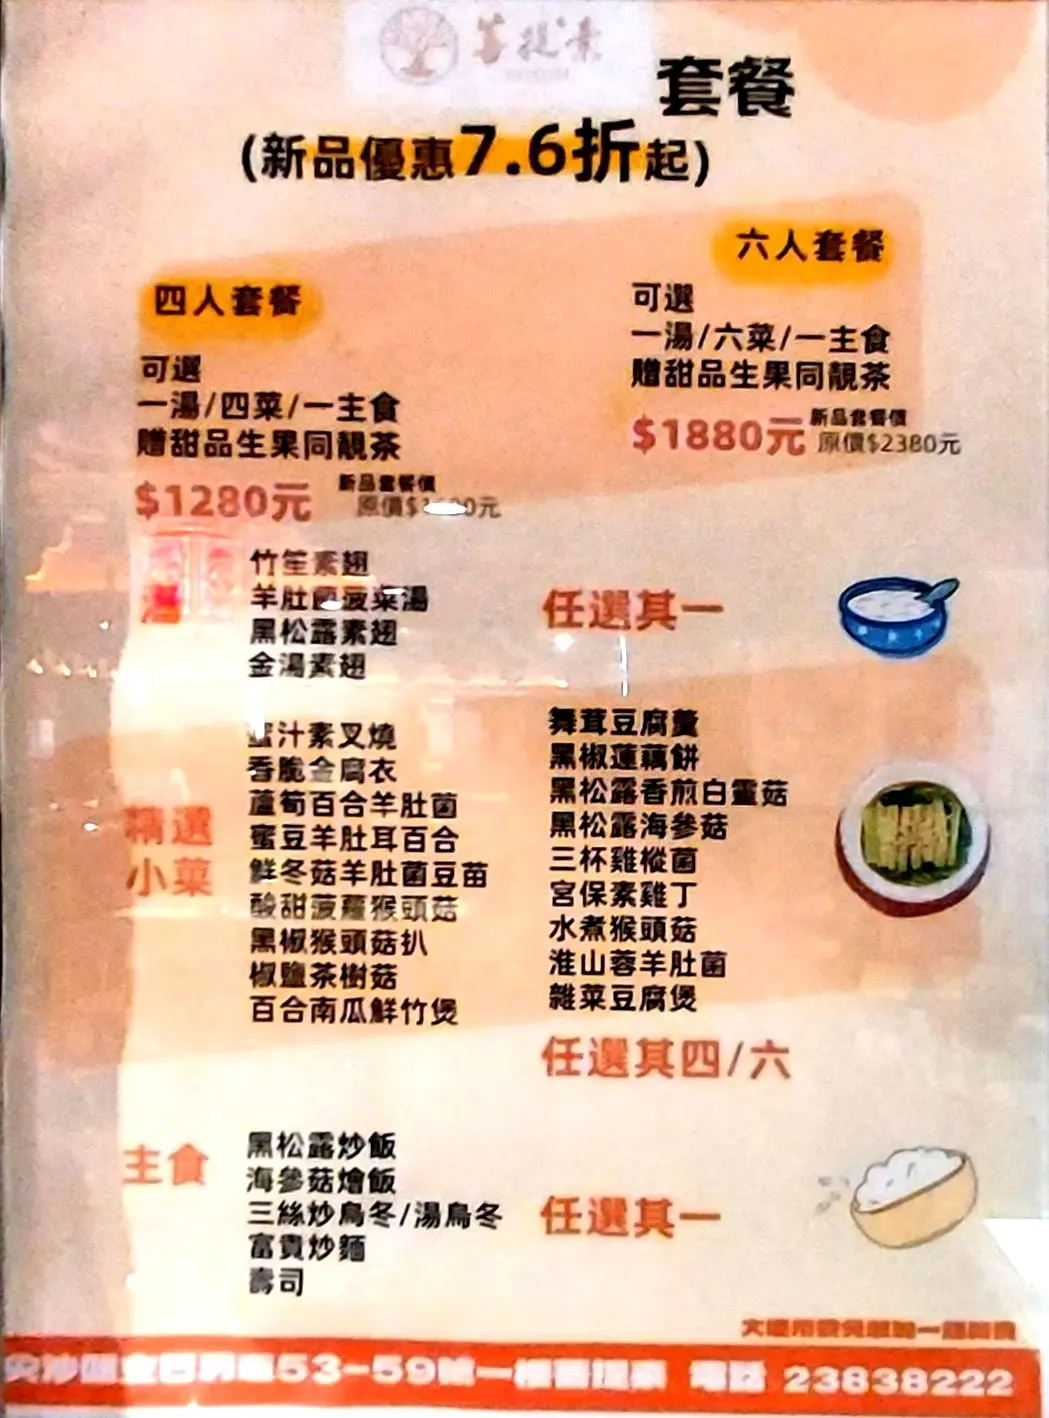 菩提素
套餐
(新品優惠7.6折起)
四人套餐
可選
一湯/四菜/一主食
贈甜品生果同靚茶
$1280元 新品套餐價
原價$1 0元
六人套餐
可選
一湯/六菜/一主食
贈甜品生果同靚茶
$1880元 新品套餐價
原價$2380元
湯
竹笙素翅
羊肚菌菠菜湯
黑松露素翅
金湯素翅
任選其一
精選
小菜
蜜汁素叉燒
香脆金腐衣
蘆筍百合羊肚菌
蜜豆羊肚耳百合
鮮冬菇羊肚菌豆苗
酸甜菠蘿猴頭菇
黑椒猴頭菇扒
椒鹽茶樹菇
百合南瓜鮮竹煲
舞茸豆腐羹
黑椒蓮藕餅
黑松露香煎白靈菇
黑松露海參菇
三杯雞樅菌
宮保素雞丁
水煮猴頭菇
淮山蓉羊肚菌
雜菜豆腐煲
任選其四/六
主食
黑松露炒飯
海參菇燴飯
三絲炒烏冬/湯烏冬
富貴炒麵
壽司
任選其一
53-59號一樓菩提素 電話 23838222